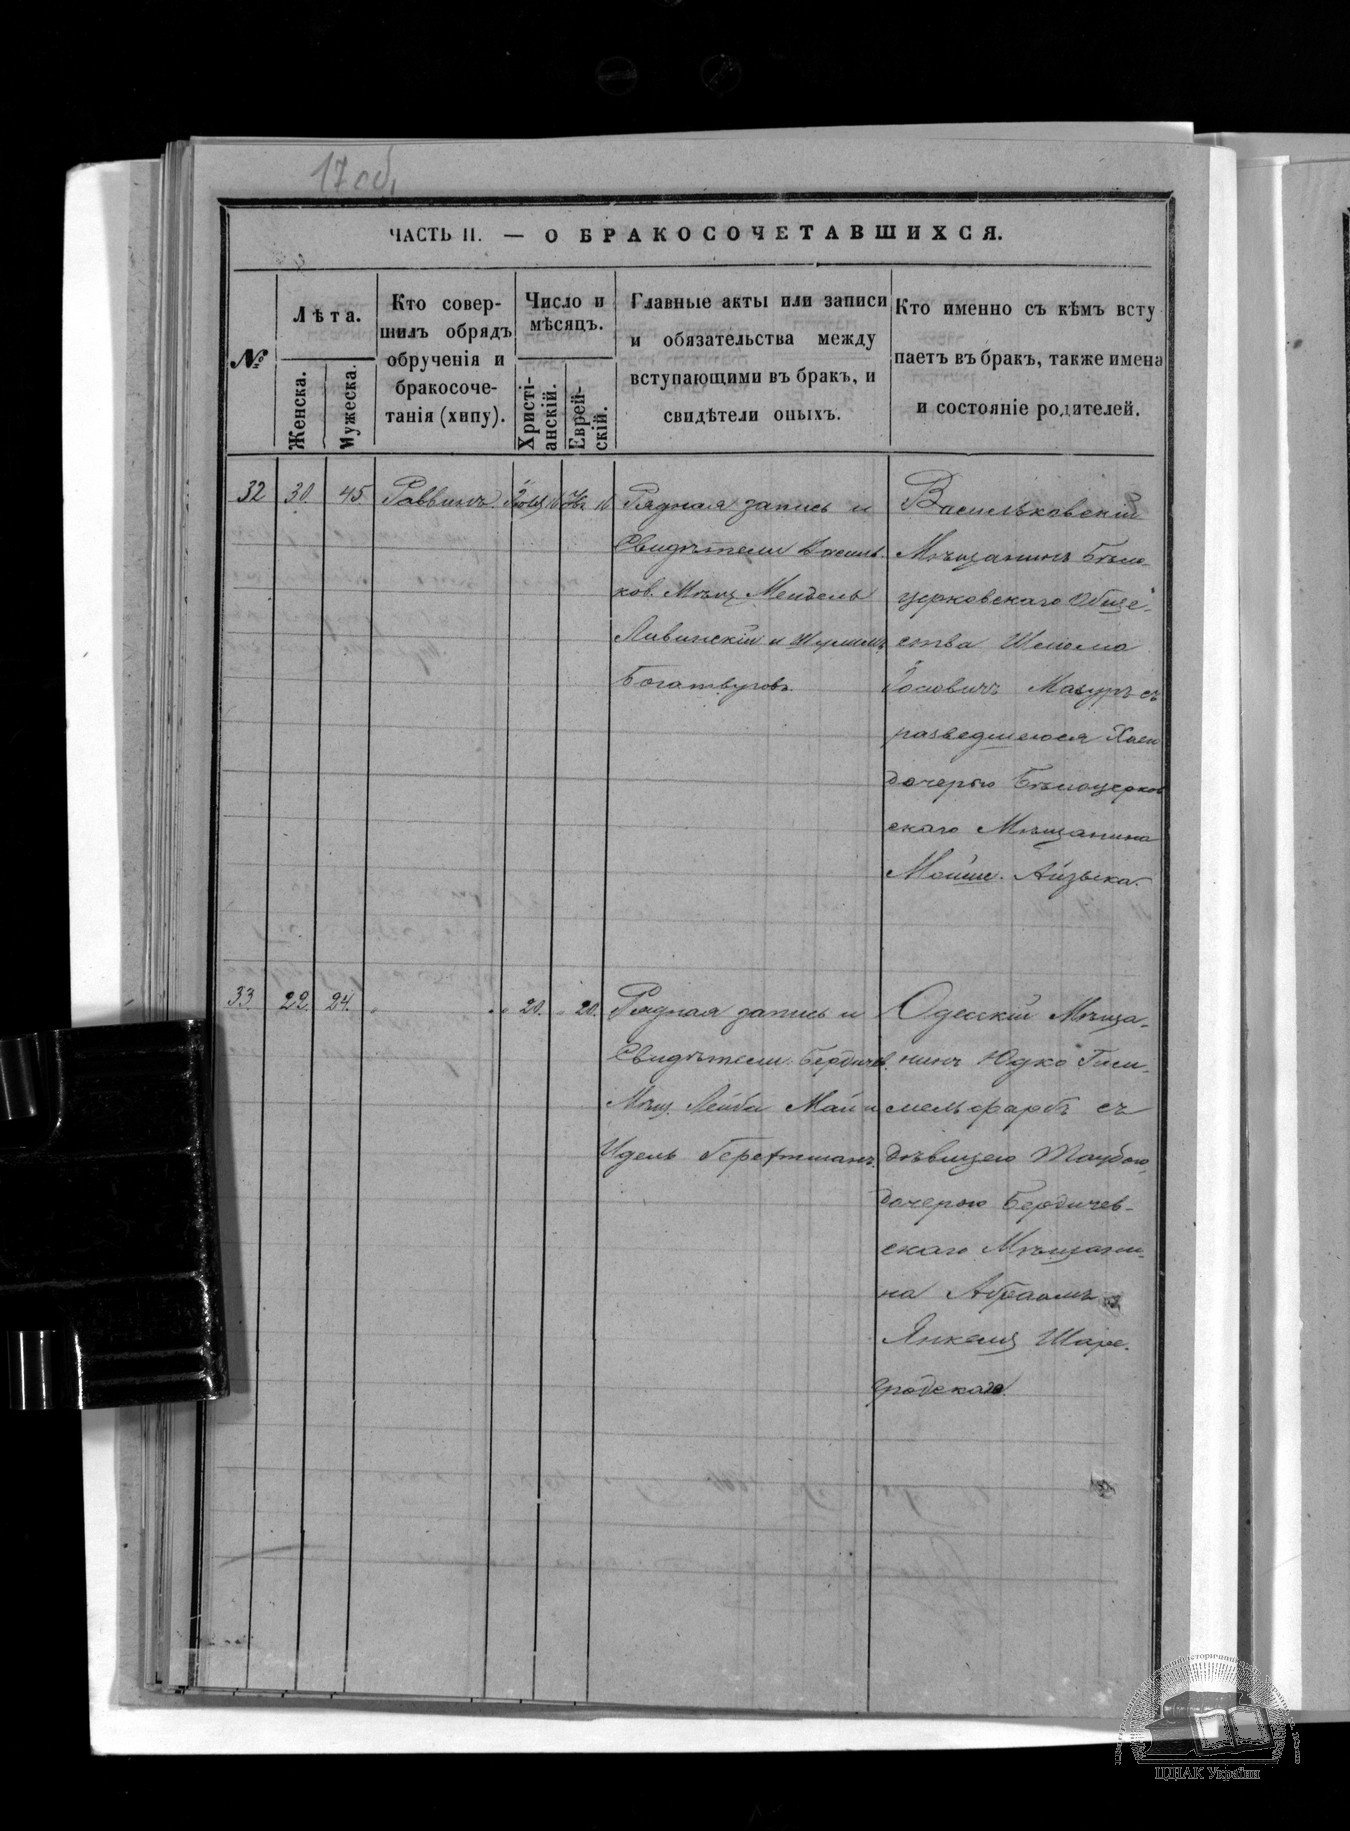 17 об,
ЧАСТЬ II. — О БРАКОСОЧЕТАВШИХСЯ.
№
Лѣта.
Женска.
Мужеска.
Кто совер-
шилъ обрядъ
обрученія и
бракосоче-
танія (хипу).
Число и
мѣсяцъ.
Христі-
анскій.
Еврей-
скій.
Главные акты или записи
и обязательства между
вступающими въ бракъ, и
свидѣтели оныхъ.
Кто именно съ кѣмъ всту
паетъ въ бракъ, также имена
и состояніе родителей.
32 30. 45. Раввинъ.
Рядная запись и
Свидѣтели Василь-
ков. Мѣщ. Мендель
Ливинскій и Шулимъ
Богатвуговъ.
Васильковскій
Мѣщанинъ Бѣло-
церковскаго Обще-
ства Шлема
Іосіовичъ Мазуръ съ
разведшеюся
дочерью Бѣлоцерков
скаго Мѣщанина
Мойше. Айзыка.
33. 22. 24. " " 20. " 20.
Рядная запись и
Свидѣтели. Бердичев.
Мѣщ. Лейба Май и
Идель
Одесскій Мѣща-
нинъ Юдко Гим-
мельфарбъ съ
дѣвицею Таубою,
дочерью Бердичев-
скаго Мѣщани-
на Абраамъ
Янкеля Шаре-
гродскаго.
ЦДІАК України